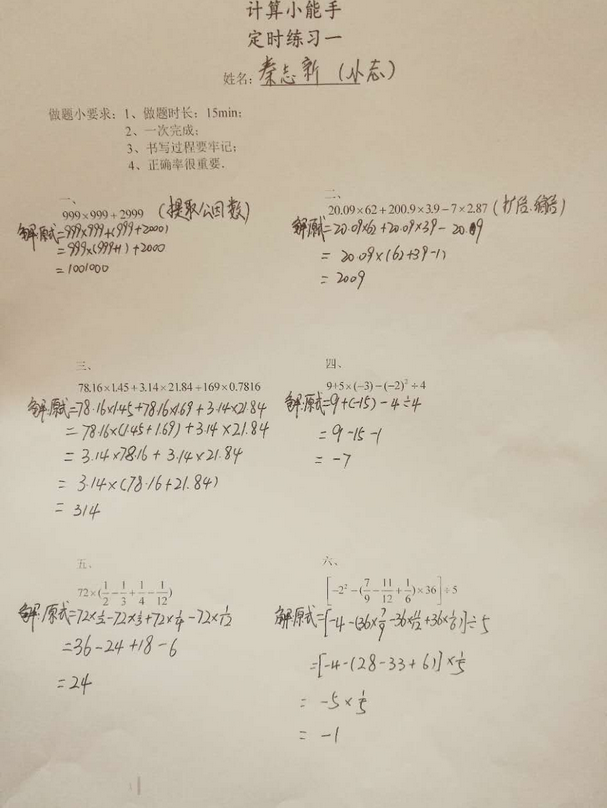 计算小能手
定时练习一
姓名：秦志新（小志）
做题小要求：1、做题时长：15min；
2、一次完成；
3、书写过程要牢记；
4、正确率很重要．
一、
999×999+2999 （提取公因数）
解:原式=999×999+(999+2000)
=999×(999+1)+2000
=1001000
二、
20.09×62+200.9×3.9−7×2.87（扩倍.缩倍）
解:原式=20.09×62+20.09×39−20.09
= 20.09×(62+39-1)
= 2009
三、
78.16×1.45+3.14×21.84+169×0.7816
解:原式=78.16×1.45+78.16×1.69+3.14×21.84
= 78.16×(1.45+1.69)+3.14×21.84
= 3.14×78.16+3.14×21.84
= 3.14×(78.16+21.84)
= 314
四、
9+5×(−3)−(−2)²÷4
解:原式=9+(-15)-4÷4
= 9-15-1
= -7
五、
72×(1/2−1/3+1/4−1/12)
解:原式=72×1/2-72×1/3+72×1/4-72×1/12
=36-24+18-6
=24
六、
[−2²−(7/9−11/12+1/6)×36]÷5
解:原式=[-4-(36×7/9-36×11/12+36×1/6)]÷5
=[-4-(28-33+6)]×1/5
= -5×1/5
= -1